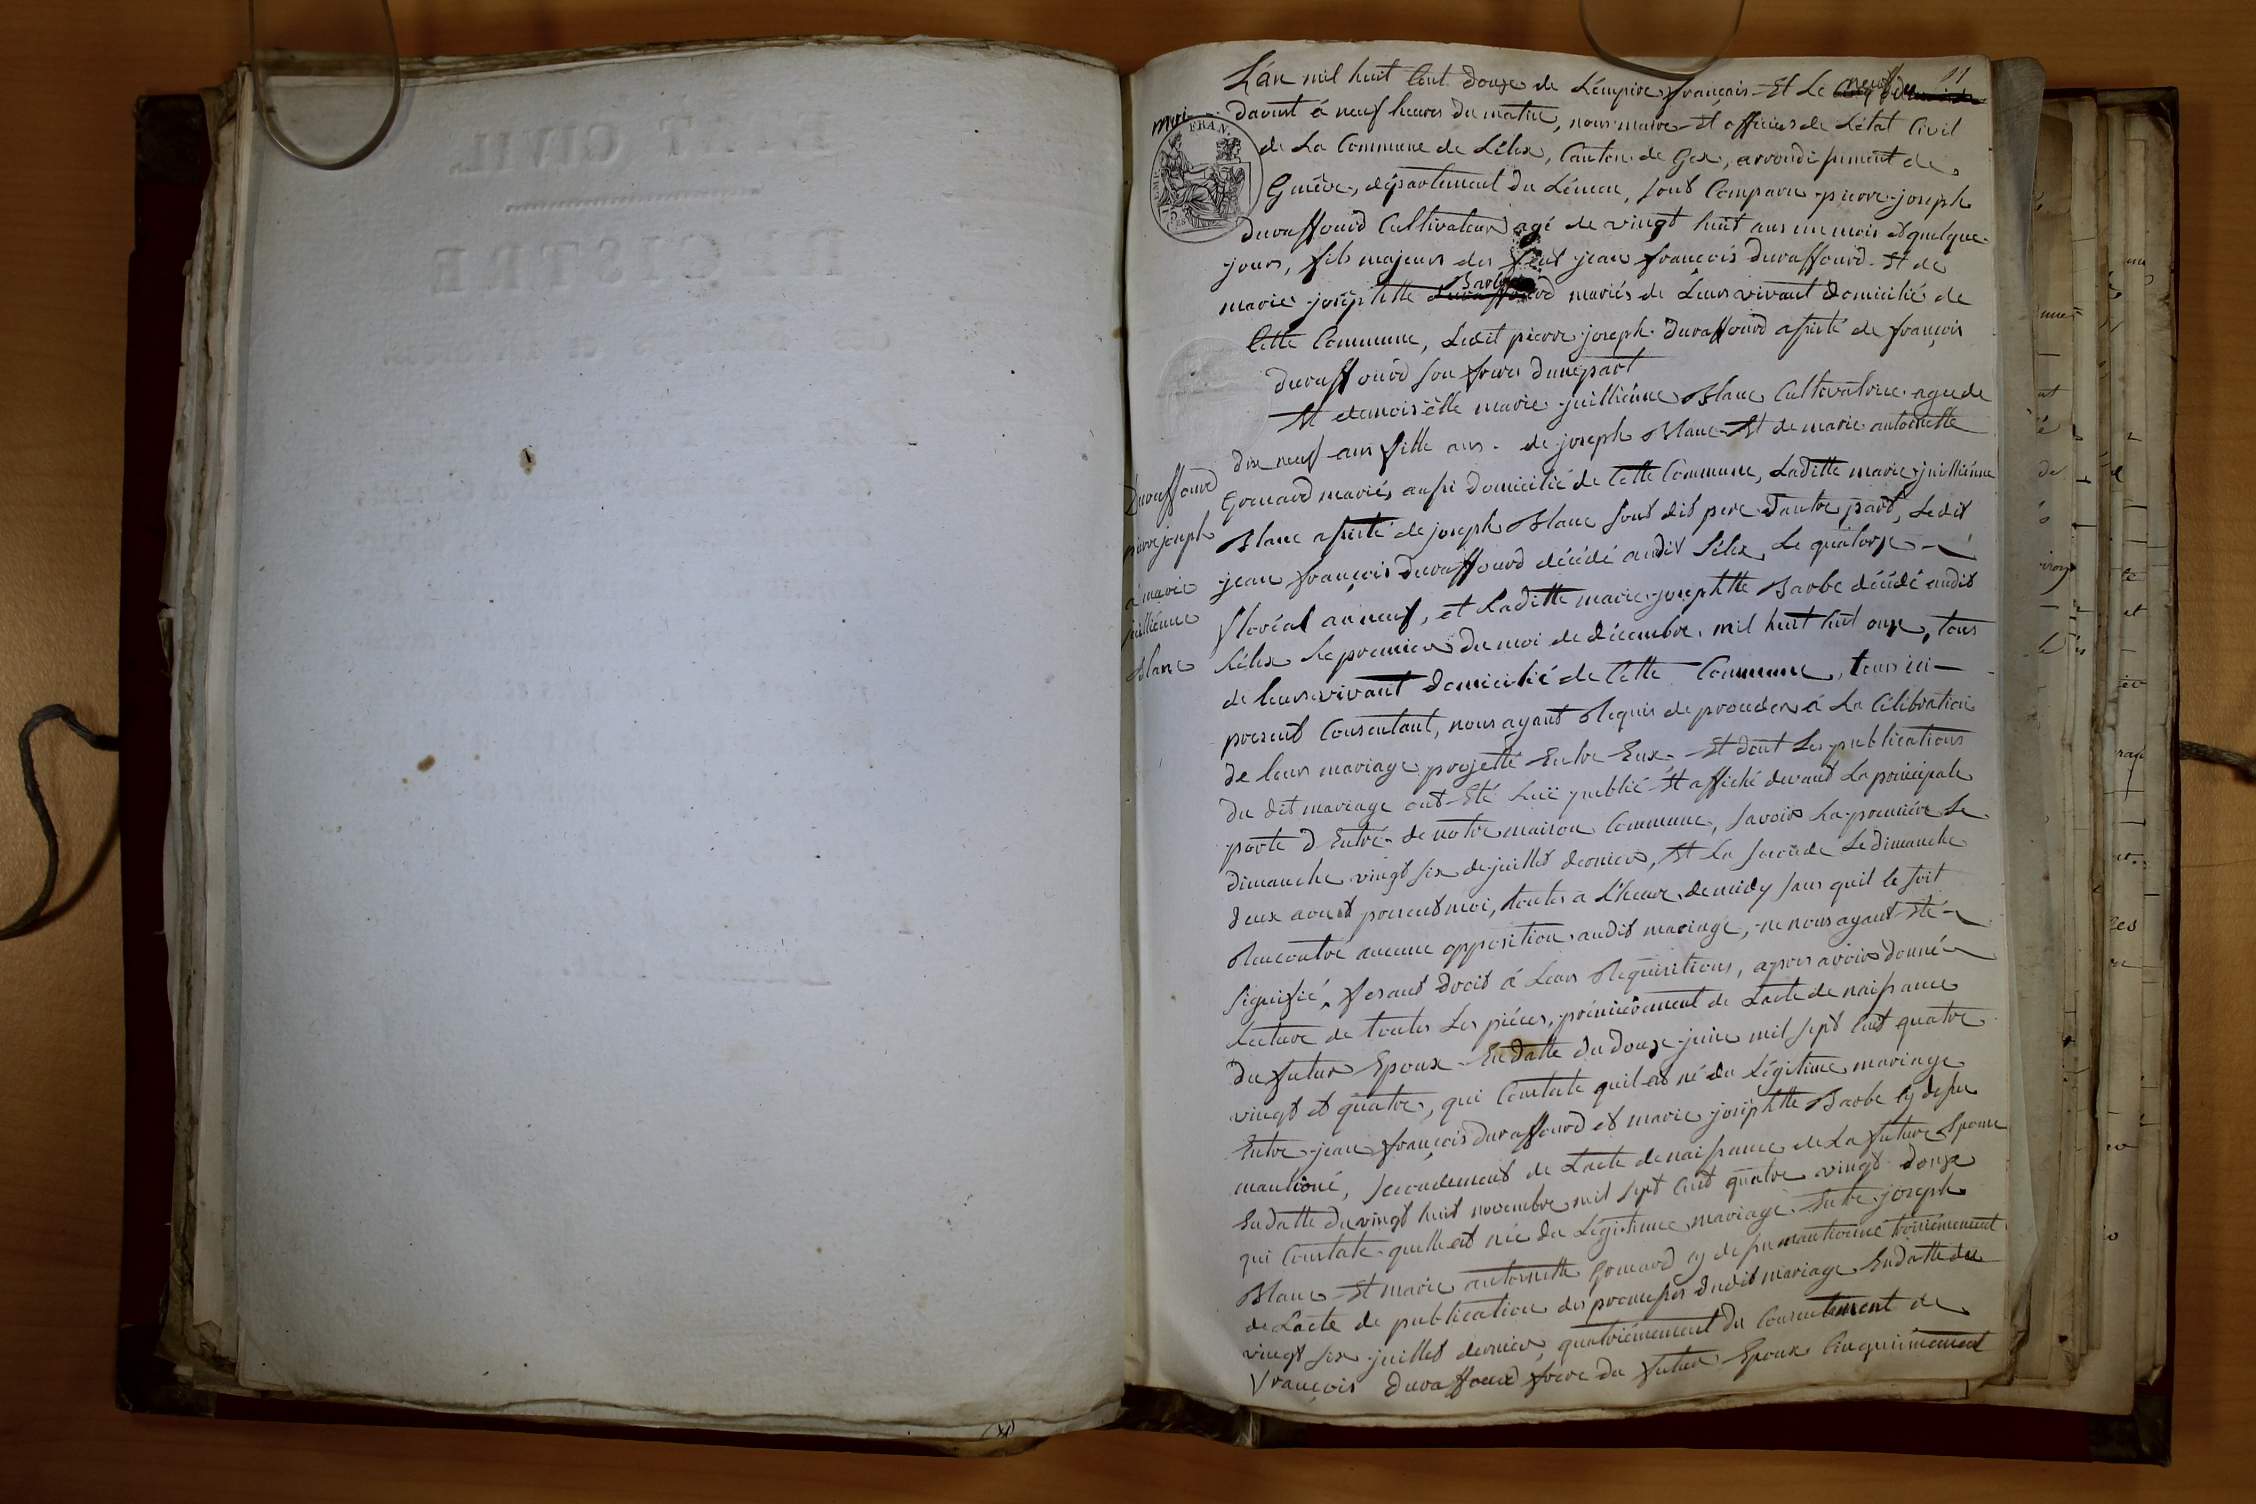 11
L'an mil huit Cent douze de L'émpire français Et Le neuf du
moi
daout á neuf heures du matin, nous maire Et officier de L'état Civil
de La Commune de Lélex, Canton de Gex, arrondissement de
Genêve, département du Léman, sont Comparu pierre joseph
duraffourd Cultivateur agé de vingt huit ans un mois et quelque
jours, fils majeur des feut jean françois duraffourd Et de
marie josephtte Barbe mariés de Leurs vivant domicilié de
Cette Commune, Ledit pierre joseph duraffourd assisté de françois
duraffourd son frere dune part
Et demoiselle marie juilliénne Blanc Cultivatrice agée de
dix neuf ans fille de joseph Blanc Et de marie antoinette
Grenard mariés aussi domicilié de Cette Commune, Laditte marie juilliénne
Blanc assisté de joseph Blanc sout dit pere d'autre part, Ledit
jean françois duraffourd décédé audit Lélex, Le quatorze
floréal an neuf, et Laditte marie josephtte Barbe décédé audit
Lélex Le premier du moi de décembre mil huit huit onze, tous
de leurs vivant domicilié de Cette Commune, tous ici
present Consentant, nous ayant Requis de proceder á La Célébration
de leur mariage projetté Entre Eux Et dont Les publications
du dit mariage ont Eté Luë publié Et affiché devant La principale
porte d'Entré de notre maison Commune, savoir La premiére Le
dimanche vingt six de juillet dernier, Et La seconde Le dimanche
deux aout present moi, toutes a L'heure de midy sans quil le soit
Rencontré aucune opposition audit mariage, ne nous ayant Eté
signifié, fesant droit á Leur Réquisitions, apres avoir donné
Lecture de toutes Les piéces, prémiérement de L'acte de naissance
du futur Epoux En datte du douze juin mil sept Cent quatre
vingt et quatre, qui Constate quil est né du Légitime mariage
Entre jean françois duraffourd et marie joséphtte Barbe cy dessu
mantioné, secondement de L'acte de naissance de La future Epouse
En datte du vingt huit novembre mil sept Cent quatre vingt douze
qui Constate quelle est née du Légitime mariage Entre joseph
Blanc Et marie antoinette Grenard cy dessu mantionné troisiémement
de L'acte de publication des promesses dudit mariage En datte du
vingt six juillet dernier, quatriémement du Consentement de
François duraffourd frere du futur Epoux Cinquiémement
Duraffourd
pierre joseph
á marie
juilliénne
Blanc